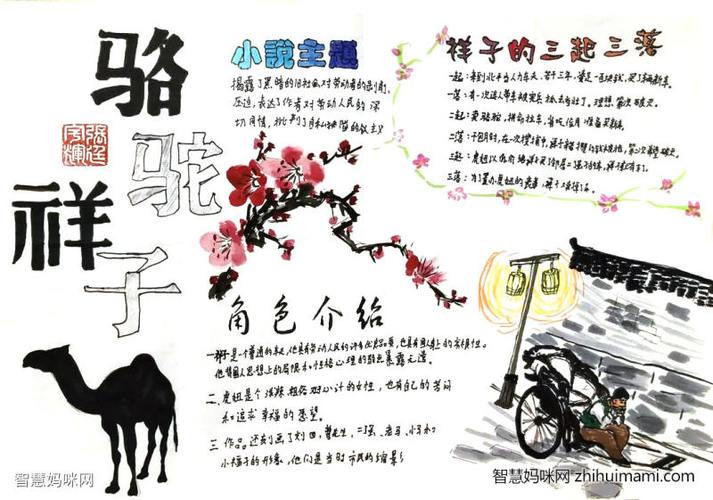 骆驼祥子
小說主题
揭露了黑暗的旧社会对劳动者的剥削、
压迫,表达了作者对劳动人民的深
切同情,批判了自私
角色介绍
一祥子是一个普通的车夫,他具有劳动人民的许多优良品质
二、虎妞是个泼辣 的女性,也有自己的苦闷
和追求幸福的愿望。
三 作品还刻画了刘四,曹先生,二强、老马、小马和
小福子的形象,他们是当时市民的缩影
祥子的三起三落
一起:来到北平当人力车夫,苦干三年,凑足一百块钱,买了辆新车。
一落:有一次连人带车被宪兵抓去当壮丁。理想第一次破灭。
二起:卖骆驼,拼命拉车,省吃俭用准备买新车。
二落:干包月时,在一次搜捕中,第二次希望破灭。
三起:虎妞以低价给祥子买了邻居二强子的车,祥子又有车了。
三落:为了置办虎妞的丧事,祥子又卖掉了车。
智慧妈咪网
智慧妈咪网 zhihuimami.com